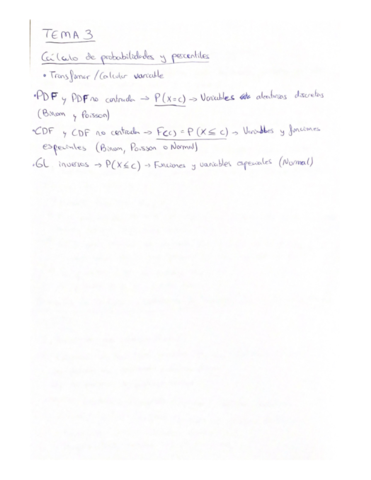 TEMA 3
Cálculo de probabilidades y percentiles
• Transformar / Calcular variable
• PDF y PDF no centrada → P(X=c) → Variables aleatorias discretas
(Binom y Poisson)
• CDF y CDF no centrada → F(c) = P(X ≤ c) → Variables y funciones
especiales (Binom, Poisson o Normal)
• GL inversos → P(X ≤ c) → Funciones y variables especiales (Normal)